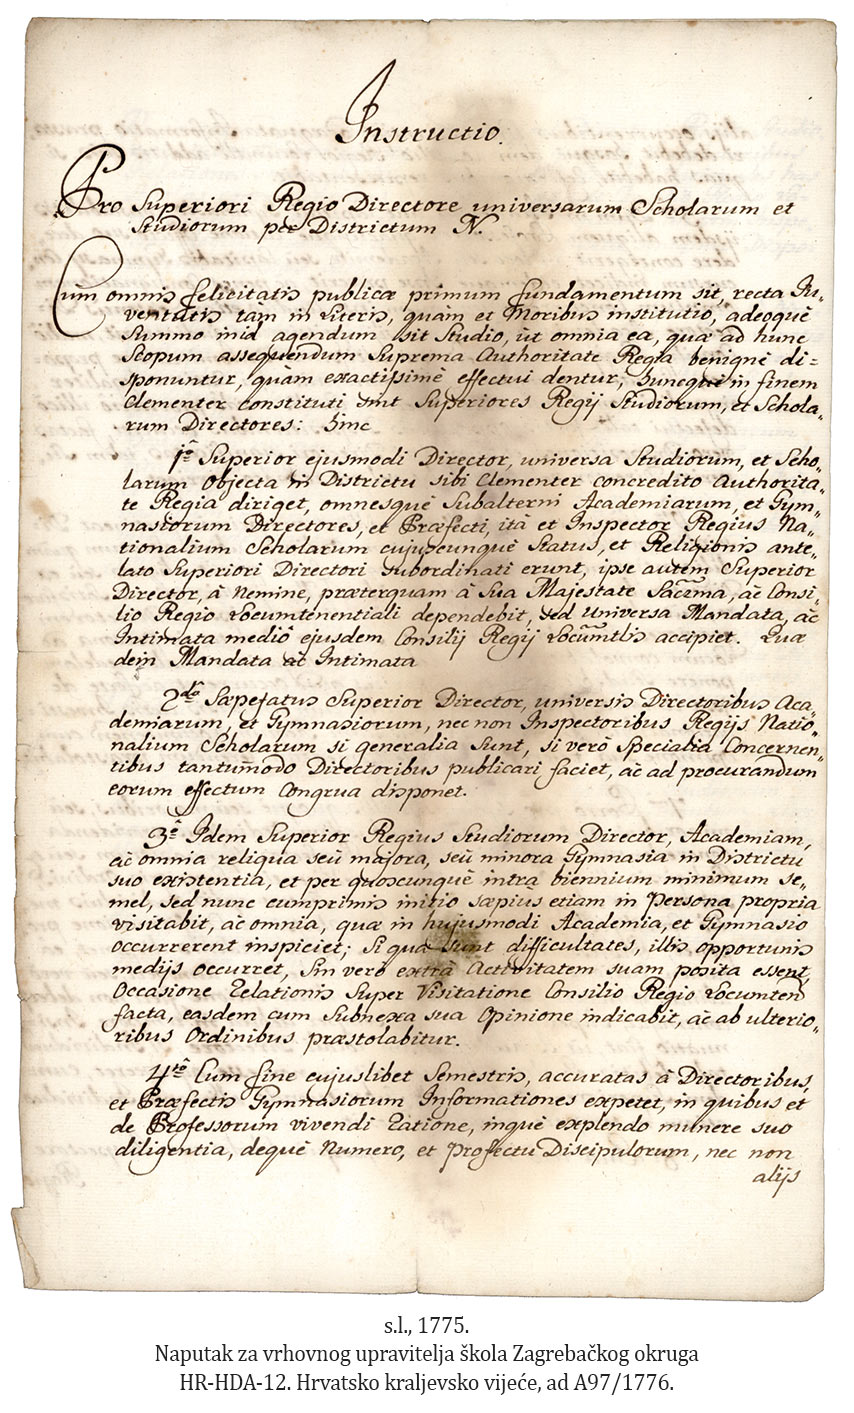 Instructio.
Pro Superiori Regio Directore universarum Scholarum et
Studiorum per Districtum N.
Cum omnis felicitatis publicæ primum fundamentum sit, recta Ju„
ventutis tam in Literis, quàm et Moribus institutio, adeoquè
Summo inid agendum sit Studio, ùt omnia ea, quæ ad hunc
Scopum assequendum Suprema Authoritate Regia benignè di=
sponuntur, quàm exactissimè effectui dentur, hunequè in finem
Clementer constituti sint Superiores Regij Studiorum, et Schola„
rum Directores: hinc
1ô Superior ejusmodi Director, universa Studiorum, et Scho„
larum Objecta in Districtu sibi Clementer concredito Authorita„
te Regia diriget, omnesquè Subalterni Academiarum, et Gym„
nasiorum Directores, et Præfecti, ità et Inspector Regius Na„
tionalium Scholarum cujuscunquè Status, et Religionis ante„
lato Superiori Directori subordinati erunt, ipse autem Superior
Director, à Nemine, præterquam à Sua Majestate Sacma, àc Consi„
lio Regio Locumtenentiali dependebit, sed Universa Mandata, àc
Intimata mediô ejusdem Consilij Regij Locumtlis accipiet. Quæ
dein Mandata àc Intimata
2dô Sæpefatus Superior Director, universis Directoribus Aca„
demiarum, et Gymnasiorum, nec non Inspectoribus Regijs Natio„
nalium Scholarum si generalia Sunt, si verò Specialia Concernen„
tibus tantummodo Directoribus publicari faciet, àc ad procurandum
eorum effectum Congrua disponet.
3ô Idem Superior Regius Studiorum Director, Academiam,
àc omnia reliqua seù majora, seù minora Gymnasia in Districtu
suo existentia, et per quoscunquè intra biennium minimum se„
mel, sed nunc cumprimis initio sæpius etiam in Persona propria
visitabit, àc omnia, quæ in hujusmodi Academia, et Gymnasio
occurrerent inspiciet; Si quæ sunt difficultates, illis opportunis
medijs occurret, Sin verò extrà Activitatem suam posita essent,
Occasione Relationis Super Visitatione Consilio Regio Locumten
facta, easdem cum Subnexa sua Opinione indicabit, àc ab ulterio„
ribus Ordinibus præstolabitur.
4tô Cum fine cujuslibet Semestris, accuratas à Directoribus,
et Præfectis Gymnasiorum Informationes expetet, in quibus et
de Professorum vivendi Ratione, inquè explendo munere suo
diligentia, dequè Numero, et profectu Discipulorum, nec non
alijs
s.l., 1775.
Naputak za vrhovnog upravitelja škola Zagrebačkog okruga
HR-HDA-12. Hrvatsko kraljevsko vijeće, ad A97/1776.